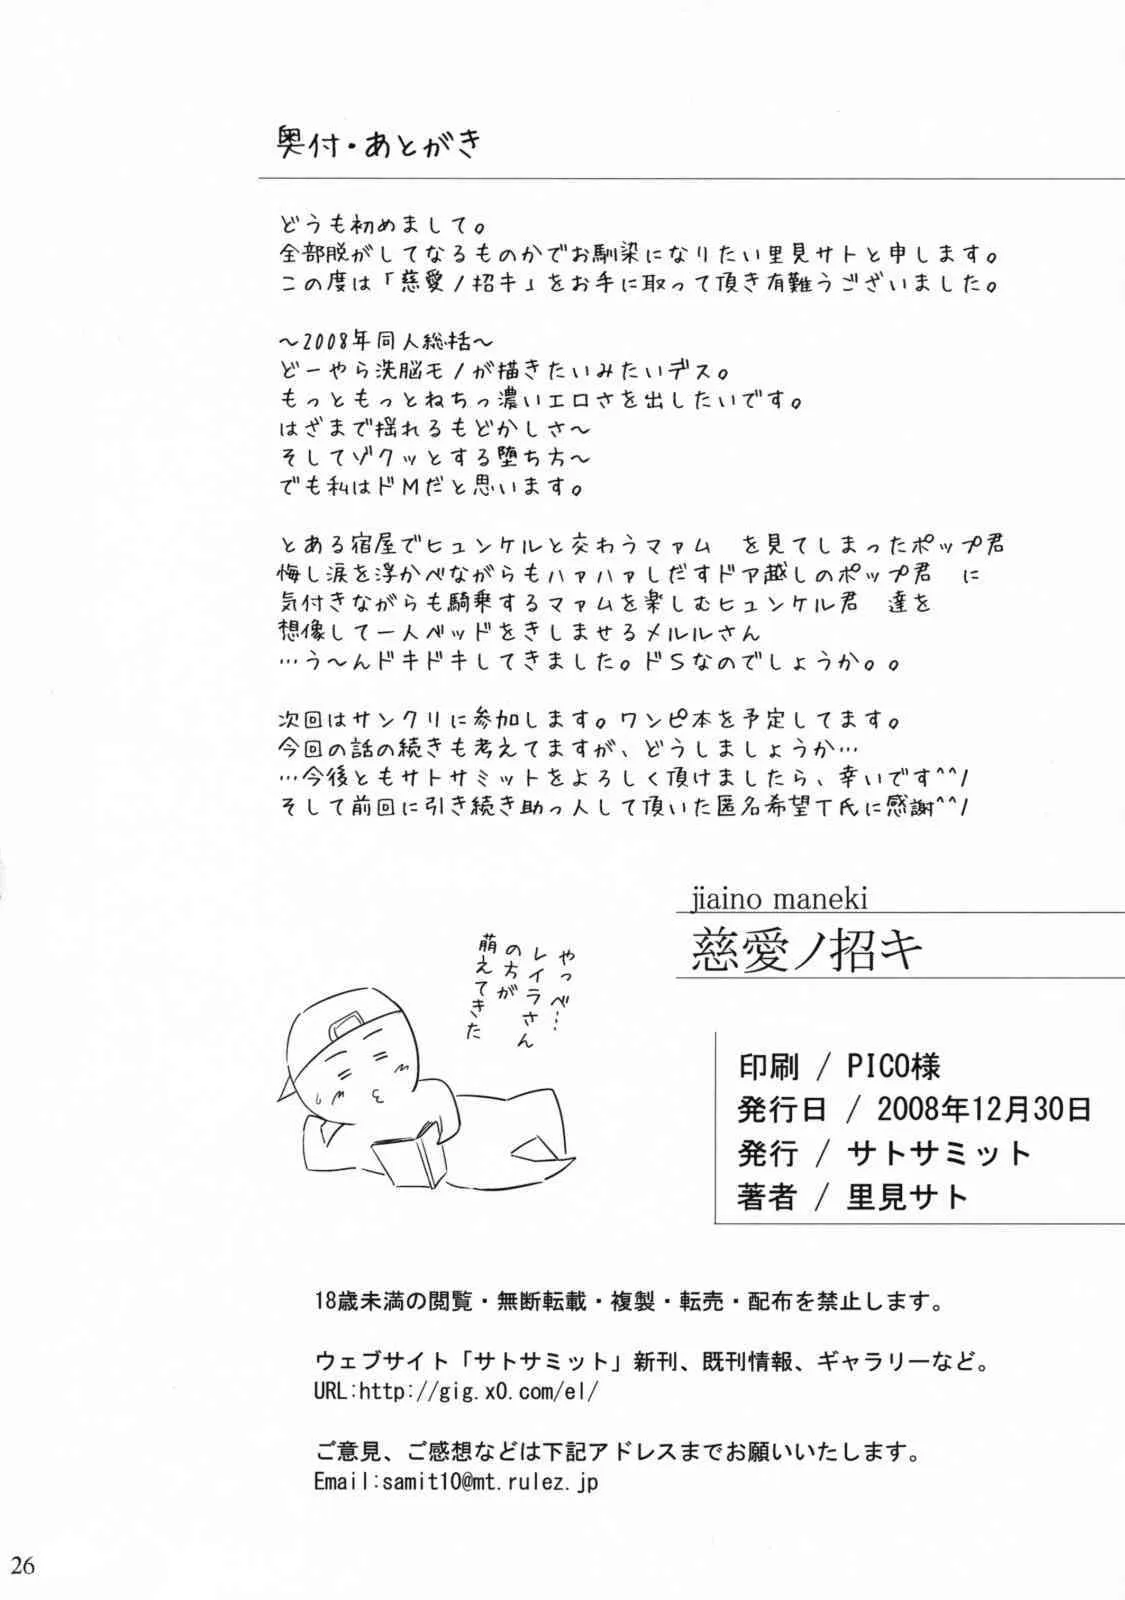 奥付・あとがき
どうも初めまして。
全部脱がしてなるものかでお馴染になりたい里見サトと申します。
この度は「慈愛ノ招キ」をお手に取って頂き有難うございました。
～2008年同人総括～
どーやら洗脳モノが描きたいみたいデス。
もっともっとねちっ濃いエロさを出したいです。
はざまで揺れるもどかしさ～
そしてゾクッとする堕ち方～
でも私はドMだと思います。
とある宿屋でヒュンケルと交わうマァム　を見てしまったポップ君
悔し涙を浮かべながらもハァハァしだすドア越しのポップ君　に
気付きながらも騎乗するマァムを楽しむヒュンケル君　達を
想像して一人ベッドをきしませるメルルさん
…う～んドキドキしてきました。ドSなのでしょうか。。
次回はサンクリに参加します。ワンピ本を予定してます。
今回の話の続きも考えてますが、どうしましょうか…
…今後ともサトサミットをよろしく頂けましたら、幸いです^^/
そして前回に引き続き助っ人して頂いた匿名希望T氏に感謝^^/
jiaino maneki
慈愛ノ招キ
やっべ…
レイラさん
の方が
萌えてきた
印刷 / PICO様
発行日 / 2008年12月30日
発行 / サトサミット
著者 / 里見サト
18歳未満の閲覧・無断転載・複製・転売・配布を禁止します。
ウェブサイト「サトサミット」新刊、既刊情報、ギャラリーなど。
URL:http://gig.x0.com/el/
ご意見、ご感想などは下記アドレスまでお願いいたします。
Email:samit10@mt.rulez.jp
26